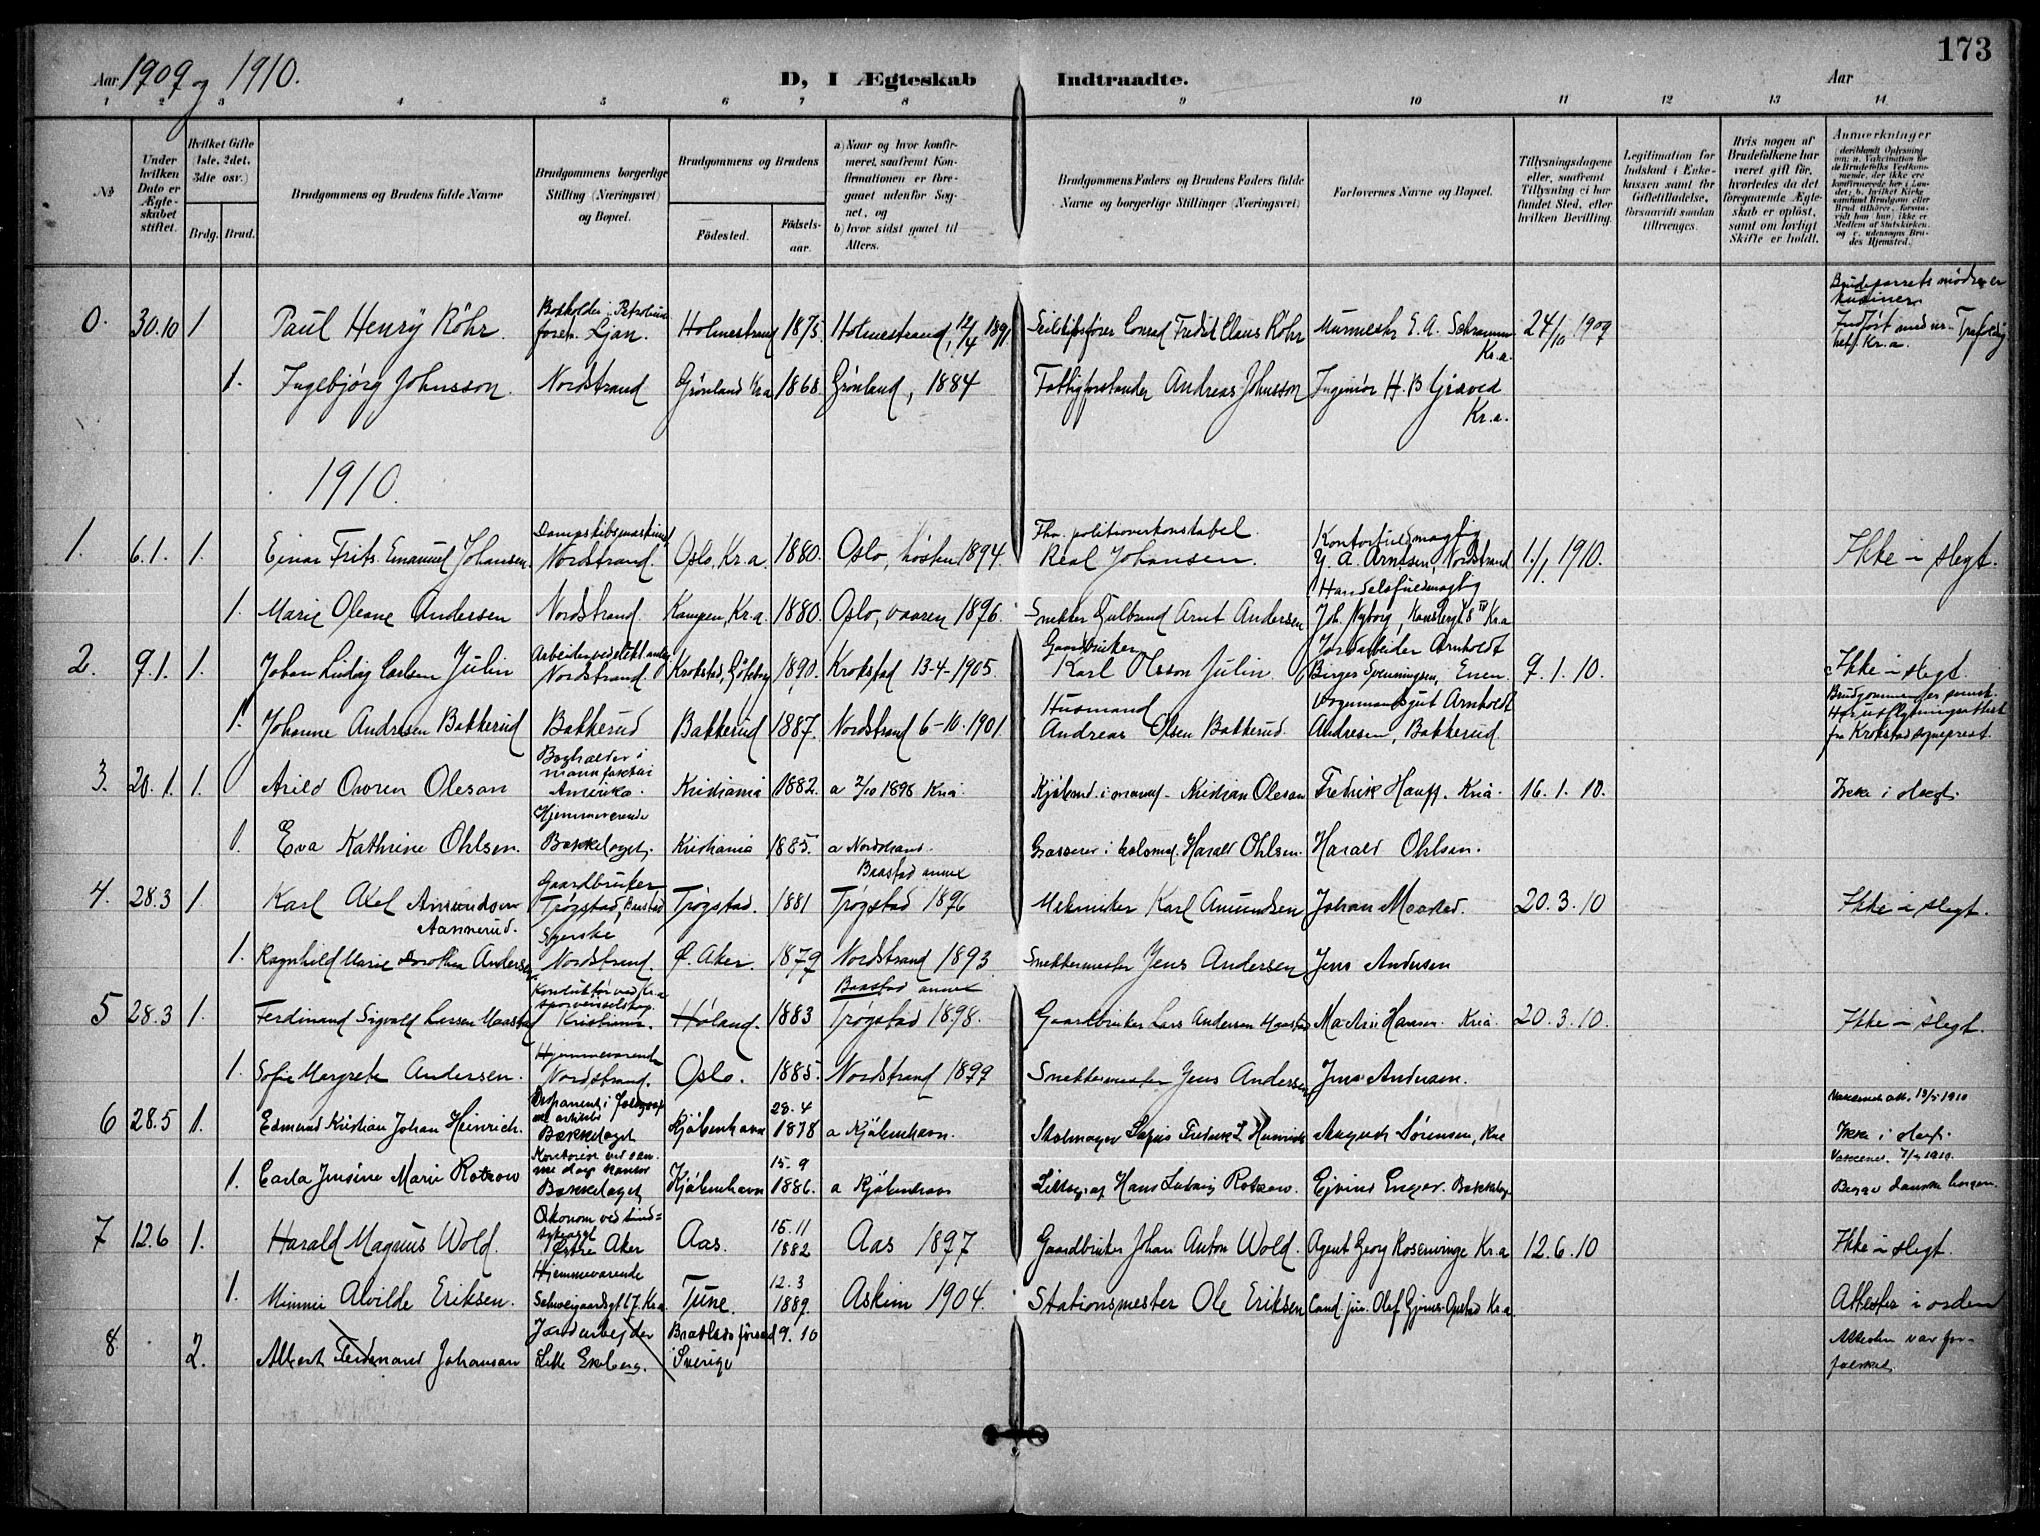 173
Aar 1909 og 1910.
D, I Ægteskab Indtraadte.
Aar
1 2 3 4 5 6 7 8 9 10 11 12 13 14
No
Under hvilken Dato er Ægteskabet stiftet.
Hvilket Gifte (1ste, 2det, 3die osv.)
Brdg. Brud.
Brudgommens og Brudens fulde Navne
Brudgommens borgerlige Stilling (Næringsvei) og Bopæl.
Brudgommens og Brudens
Fødested. Fødselsaar.
a) Naar og hvor konfirmeret, saafremt Konfirmationen er foregaaet udenfor Sognet, og
b) hvor sidst gaaet til Alters.
Brudgommens Faders og Brudens Faders fulde Navne og borgerlige Stillinger (Næringsvei)
Forlovernes Navne og Bopæl.
Tillysningsdagene eller, saafremt Tillysning ei har fundet Sted, efter hvilken Bevilling.
Legitimation for Indskud i Enkekassen samt for Giftetilladelse, forsaavidt saadan tiltrænges.
Hvis nogen af Brudefolkene har været gift før, hvorledes da det foregaaende Ægteskab er opløst, samt om lovligt Skifte er holdt.
Anmerkninger
0. 30.10 1 Paul Henry Röhr. Ljan. Holmestrand 1875 Holmestrand, 12/4 1891 Conrad Fredrik Claus Röhr E. A. Schramm Kr.a. 24/10 1909 Brudeparrets mødre er kusiner.
1. Ingebjørg Johnsson. Nordstrand Grønland Kr.a 1868 Grønland, 1884 Fattigforstander Andreas Johnsson Ingeniør H. B. Kr.a.
1910.
1. 6.1. 1. Einar Frits Emanuel Johansen. Nordstrand. Oslo, Kr.a. 1880. Oslo, høsten 1894. Fhv. politioverkonstabel Johansen. Kontorfuldmægtig A. Arntsen, Nordstrand 1/1 1910. Ikke i slegt.
1. Marie Oleane Andersen Nordstrand. Kampen, Kr.a. 1880. Oslo, vaaren 1896. Snekker Gulbrand Arnt Andersen Handelsfuldmægtig Joh. Nyborg, Kr.a
2. 9.1. 1. Johan Ludvig Carlsen Julin Nordstrand. Krokstad, Göteborg 1890. Krokstad 13-4-1905. Gaardbruker Karl Olsson Julin Jordarbeider Arnholdt Birger Svenningsen, Enen. 9.1.10. Ikke i slegt.
1. Johanne Andresen Bakkerud Bakkerud Bakkerud 1887. Nordstrand 6-10-1901. Husmand Andreas Olsen Bakkerud. Arnholdt Andresen, Bakkerud. fra Krokstad sogneprest.
3. 20.1. 1. Arild Oleson Amerika. Kristiania 1882. a 2/10 1898 Kria. Kristian Oleson Fredrik Hauff. Kria. 16.1.10. Ikke i slegt.
1. Eva Kathrine Ohlsen. Hjemmeværende Bækkelaget. Kristiania 1885. a Nordstrand. Grosserer i kolonial. Harald Ohlsen. Harald Ohlsen.
4. 28.3 1. Karl Axel Amundsen Aannerud. Gaardbruker Trøgstad, Baastad Trøgstad. 1881 Baastad annex Trøgstad 1896 Mekaniker Karl Amundsen Johan Maastad. 20.3.10 Ikke i slegt.
1. Ragnhild Marie Dorothea Andersen Syerske Nordstrand. Ø. Aker. 1879 Nordstrand 1893. Snekkermester Jens Andersen Jens Andersen
5 28.3 1. Ferdinand Sigvald Larsen Maastad Konduktør ved Kr.a sporveisselskap Kristiania. Høland. 1883 Baastad annex Trøgstad 1898. Gaardbruker Lars Andersen Maastad Hansen. Kria. 20.3.10. Ikke i slegt.
1. Sofie Margrete Andersen. Hjemmeværende Nordstrand. Oslo. 1885. Nordstrand 1899 Snekkermester Jens Andersen Jens Andersen.
6 28.5 1. Edmund Kristian Johan Heinrich. Bækkelaget Kjøbenhavn 28.4 1878 a Kjøbenhavn. August Sørensen, Kra Ikke i slegt.
1. Carla Jensine Marie Rotzow Bækkelaget Kjøbenhavn 15.9 1886. a Kjøbenhavn Litograf Hans Ludvig Rotzow. Ejvind Enger. Bækkelag. Begge danske borgere.
7 12.6 1. Harald Magnus Wold. Økonom ved sindssykeasyl Østre Aker Aas. 15.11 1882 Aas 1897 Gaardbruker Johan Anton Wold. Agent Georg Rosenvinge Kr.a 12.6.10 Ikke i slegt.
1. Minnie Alvilde Eriksen. Hjemmeværende Schweigaardsgt 67. Kr.a. Tune. 12.3 1889. Askim 1904. Stationsmester Ole Eriksen Cand. jur. Olef Kr.a Attester i orden
8. 2. Albert Ferdinand Johansson Jordarbejder Lille Ekeberg. Sverige 9.10 Attesten var forfalsket